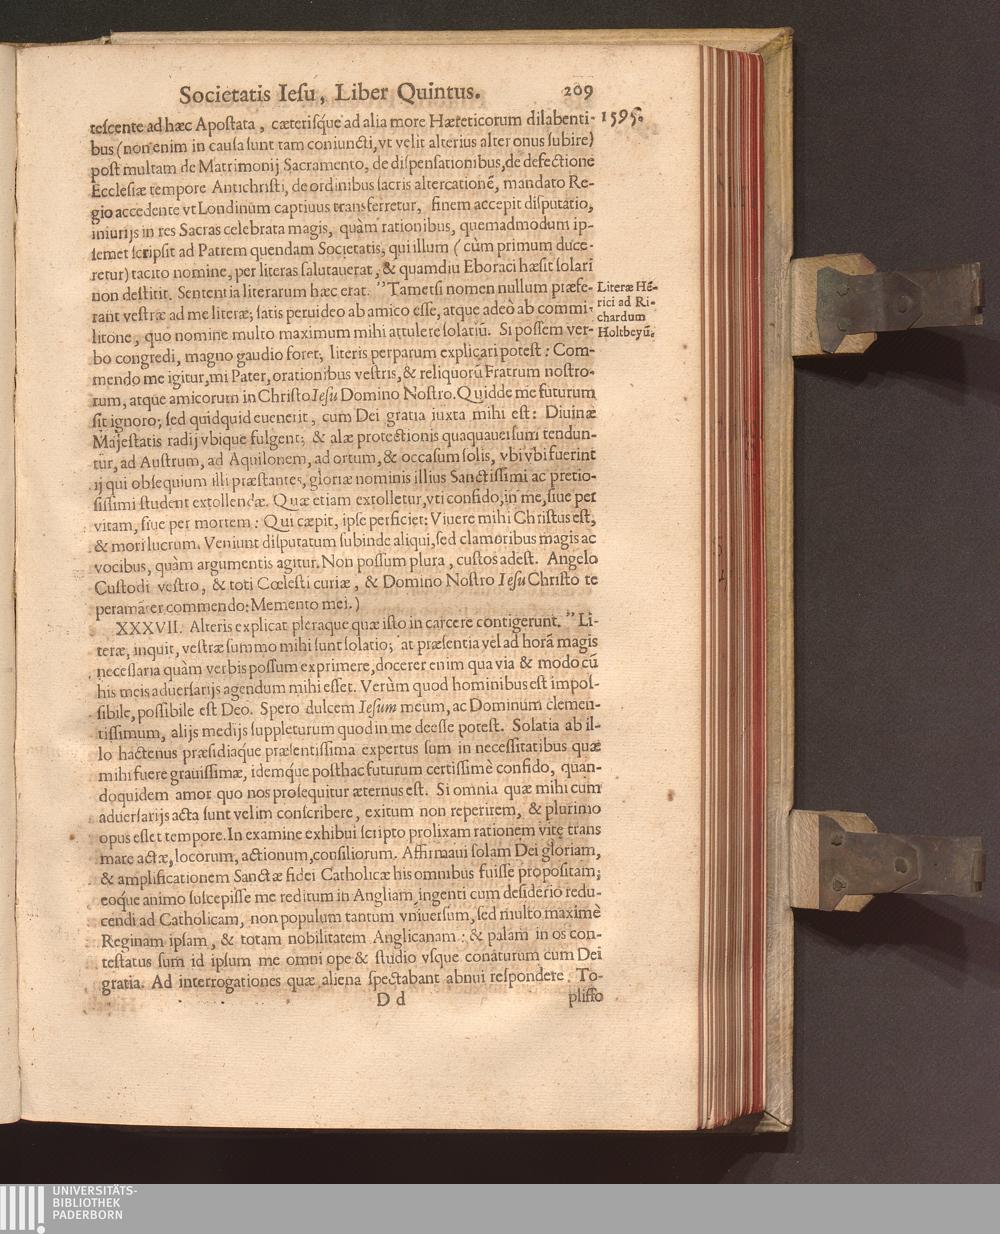 Societatis Iesu, Liber Quintus. 209
1595.
tescente ad hæc Apostata, cæterisque ad alia more Hæreticorum dilabenti-
bus (non enim in causa sunt tam coniuncti, vt velit alterius alter onus subire)
post multam de Matrimonij Sacramento, de dispensationibus, de defectione
Ecclesiæ tempore Antichristi, de ordinibus sacris altercationē, mandato Re-
gio accedente vt Londinum captiuus transferretur, finem accepit disputatio,
iniurijs in res Sacras celebrata magis, quàm rationibus, quemadmodum ip-
semet scripsit ad Patrem quendam Societatis, qui illum (cùm primum duce-
retur) tacito nomine, per literas salutauerat, & quamdiu Eboraci hæsit solari
non destitit. Sententia literarum hæc erat. "Tametsi nomen nullum præfe-
rant vestræ ad me literæ; satis peruideo ab amico esse, atque adeò ab commi-
litone, quo nomine multo maximum mihi attulere solatiū. Si possem ver-
bo congredi, magno gaudio foret; literis perparum explicari potest: Com-
mendo me igitur, mi Pater, orationibus vestris, & reliquorū Fratrum nostro-
rum, atque amicorum in Christo Iesu Domino Nostro. Quid de me futurum
sit ignoro; sed quidquid euenerit, cum Dei gratia iuxta mihi est: Diuinæ
Majestatis radij vbique fulgent; & alæ protectionis quaquauersum tendun-
tur, ad Austrum, ad Aquilonem, ad ortum, & occasum solis, vbi vbi fuerint
ij qui obsequium illi præstantes, gloriæ nominis illius Sanctissimi ac pretio-
sissimi student extollendæ. Quæ etiam extolletur, vti confido, in me, siue per
vitam, siue per mortem: Qui cæpit, ipse perficiet: Viuere mihi Christus est,
& mori lucrum. Veniunt disputatum subinde aliqui, sed clamoribus magis ac
vocibus, quàm argumentis agitur. Non possum plura, custos adest. Angelo
Custodi vestro, & toti Cœlesti curiæ, & Domino Nostro Iesu Christo te
peramāter commendo: Memento mei.)
Literæ Hē-
rici ad Ri-
chardum
Holtbeyū.
XXXVII. Alteris explicat pleraque quæ isto in carcere contigerunt. "Li-
teræ, inquit, vestræ summo mihi sunt solatio; at præsentia vel ad horā magis
necessaria quàm verbis possum exprimere, docerer enim qua via & modo cū
his meis aduersarijs agendum mihi esset. Verùm quod hominibus est impos-
sibile, possibile est Deo. Spero dulcem Iesum meum, ac Dominum clemen-
tissimum, alijs medijs suppleturum quod in me deesse potest. Solatia ab il-
lo hactenus præsidiaque præsentissima expertus sum in necessitatibus quæ
mihi fuere grauissimæ, idemq́ue posthac futurum certissimè confido, quan-
doquidem amor quo nos prosequitur æternus est. Si omnia quæ mihi cum
aduersarijs acta sunt velim conscribere, exitum non reperirem, & plurimo
opus esset tempore. In examine exhibui scripto prolixam rationem vitę trans
mare actæ, locorum, actionum, consiliorum. Affirmaui solam Dei gloriam,
& amplificationem Sanctæ fidei Catholicæ his omnibus fuisse propositam;
eoque animo suscepisse me reditum in Angliam, ingenti cum desiderio redu-
cendi ad Catholicam, non populum tantum vniuersum, sed multo maximè
Reginam ipsam, & totam nobilitatem Anglicanam: & palam in os con-
testatus sum id ipsum me omni ope & studio vsque conaturum cum Dei
gratia. Ad interrogationes quæ aliena spectabant abnui respondere. To-
D d
plisso
UNIVERSITÄTS-
BIBLIOTHEK
PADERBORN